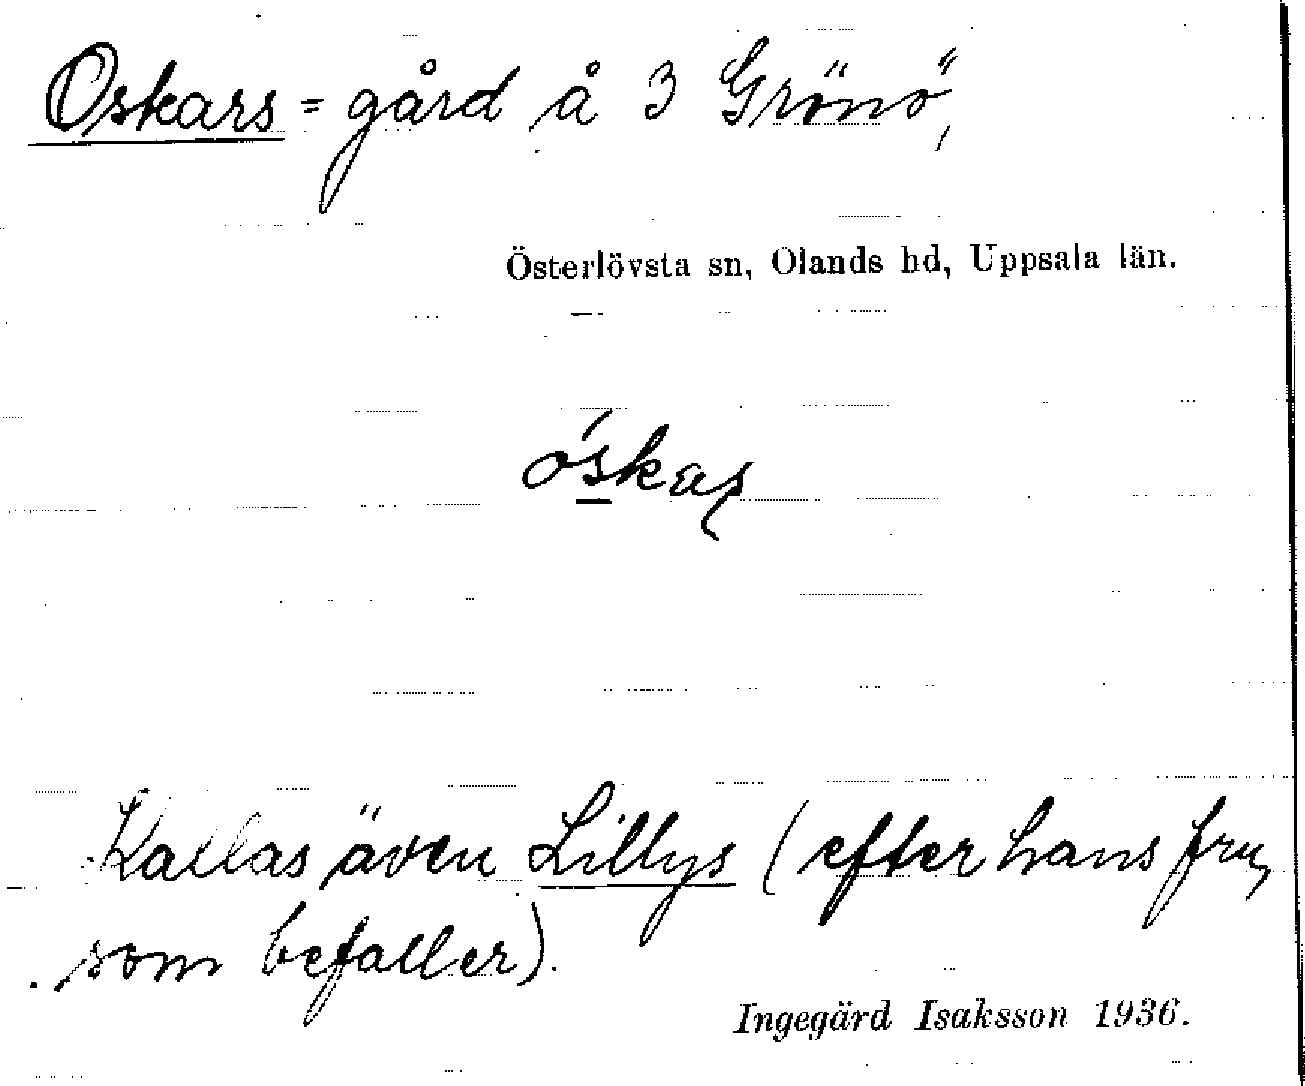 Oskars = gård å 3 Grönö,
Österlövsta sn, Olands hd, Uppsala län.
óskaʂ
Kallas även Lillys (efter hans fru,
som befaller).
Ingegärd Isaksson 1936.